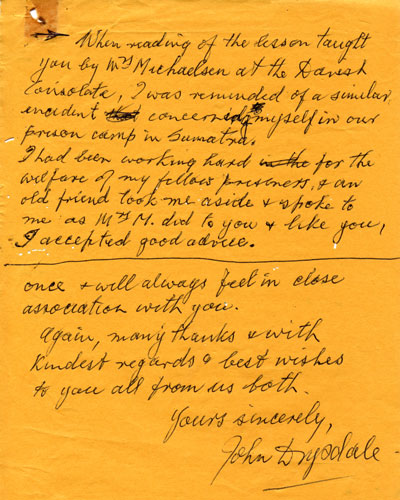 When reading of the lesson taught
you by Mrs Michaelsen at the Danish
Consolate, I was reminded of a similar
incident that concerning myself in our
prison camp in Sumatra.
I had been working hard in the for the
welfare of my fellow prisoners, & an
old friend took me aside & spoke to
me as Mrs M. did to you & like you,
I accepted good advice.
once & will always feel in close
association with you.
Again, many thanks & with
kindest regards & best wishes
to you all from us both.
Yours sincerely,
John Drysdale